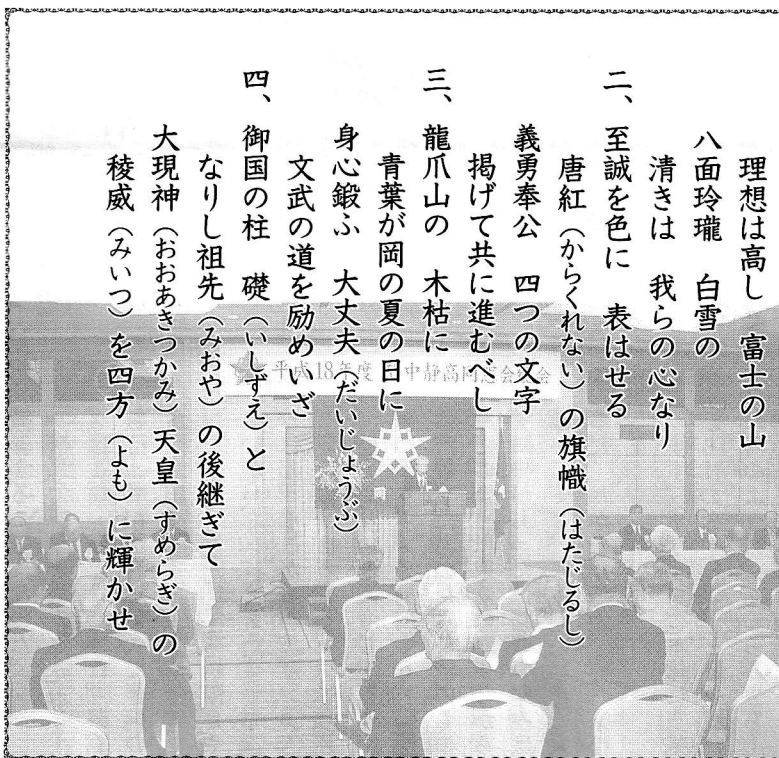 理想は高し 富士の山
八面玲瓏 白雪の
清きは 我らの心なり
二、至誠を色に 表はせる
唐紅(からくれない)の旗幟(はたじるし)
義勇奉公 四つの文字
掲げて共に進むべし
三、龍爪山の 木枯に
青葉が岡の夏の日に
身心鍛ふ 大丈夫(だいじょうぶ)
文武の道を励めいざ
四、御国の柱 礎(いしずえ)と
なりし祖先(みおや)の後継ぎて
大現神(おおあきつかみ)天皇(すめらぎ)の
稜威(みいつ)を四方(よも)に輝かせ
平成18年度 中静高同窓会 会